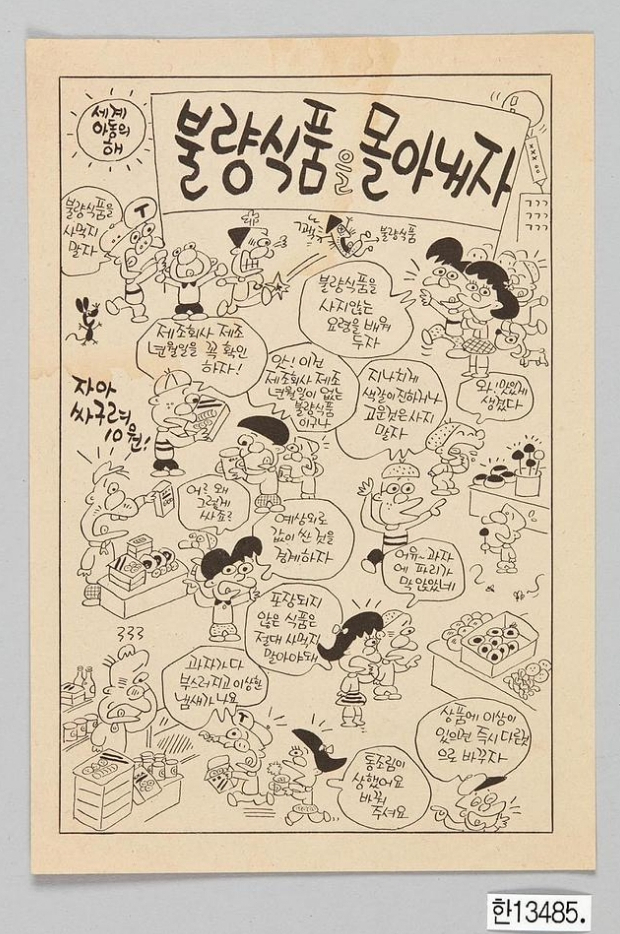 세계
아동의
해
불량식품을 몰아내자
불량식품을
사먹지
말자
T
불량식품
불량식품을
사지않는
요령을 배켜
두자
제조회사 제조
년월일을 꼭 확인
하자!
앗! 이건
제조회사 제조
년월일이 없는
불량식품
이구나
지나치게
색깔이 진하거나
고운것은 사지
말자
와, 맛있게
생겼다
자아
싸구려
10원!
어? 왜
그렇게
싸죠?
예상외로
값이 싼 것을
경계하자
어유~ 과자
에 파리가
막 앉았네
포장되지
않은 식품은
절대 사먹지
말아야돼
333
과자가 다
부스러지고 이상한
냄새가 나요
T
통조림이
상했어요
바꿔
주셔요
상품에 이상이
있으면 즉시 다른것
으로 바꾸자
한13485.